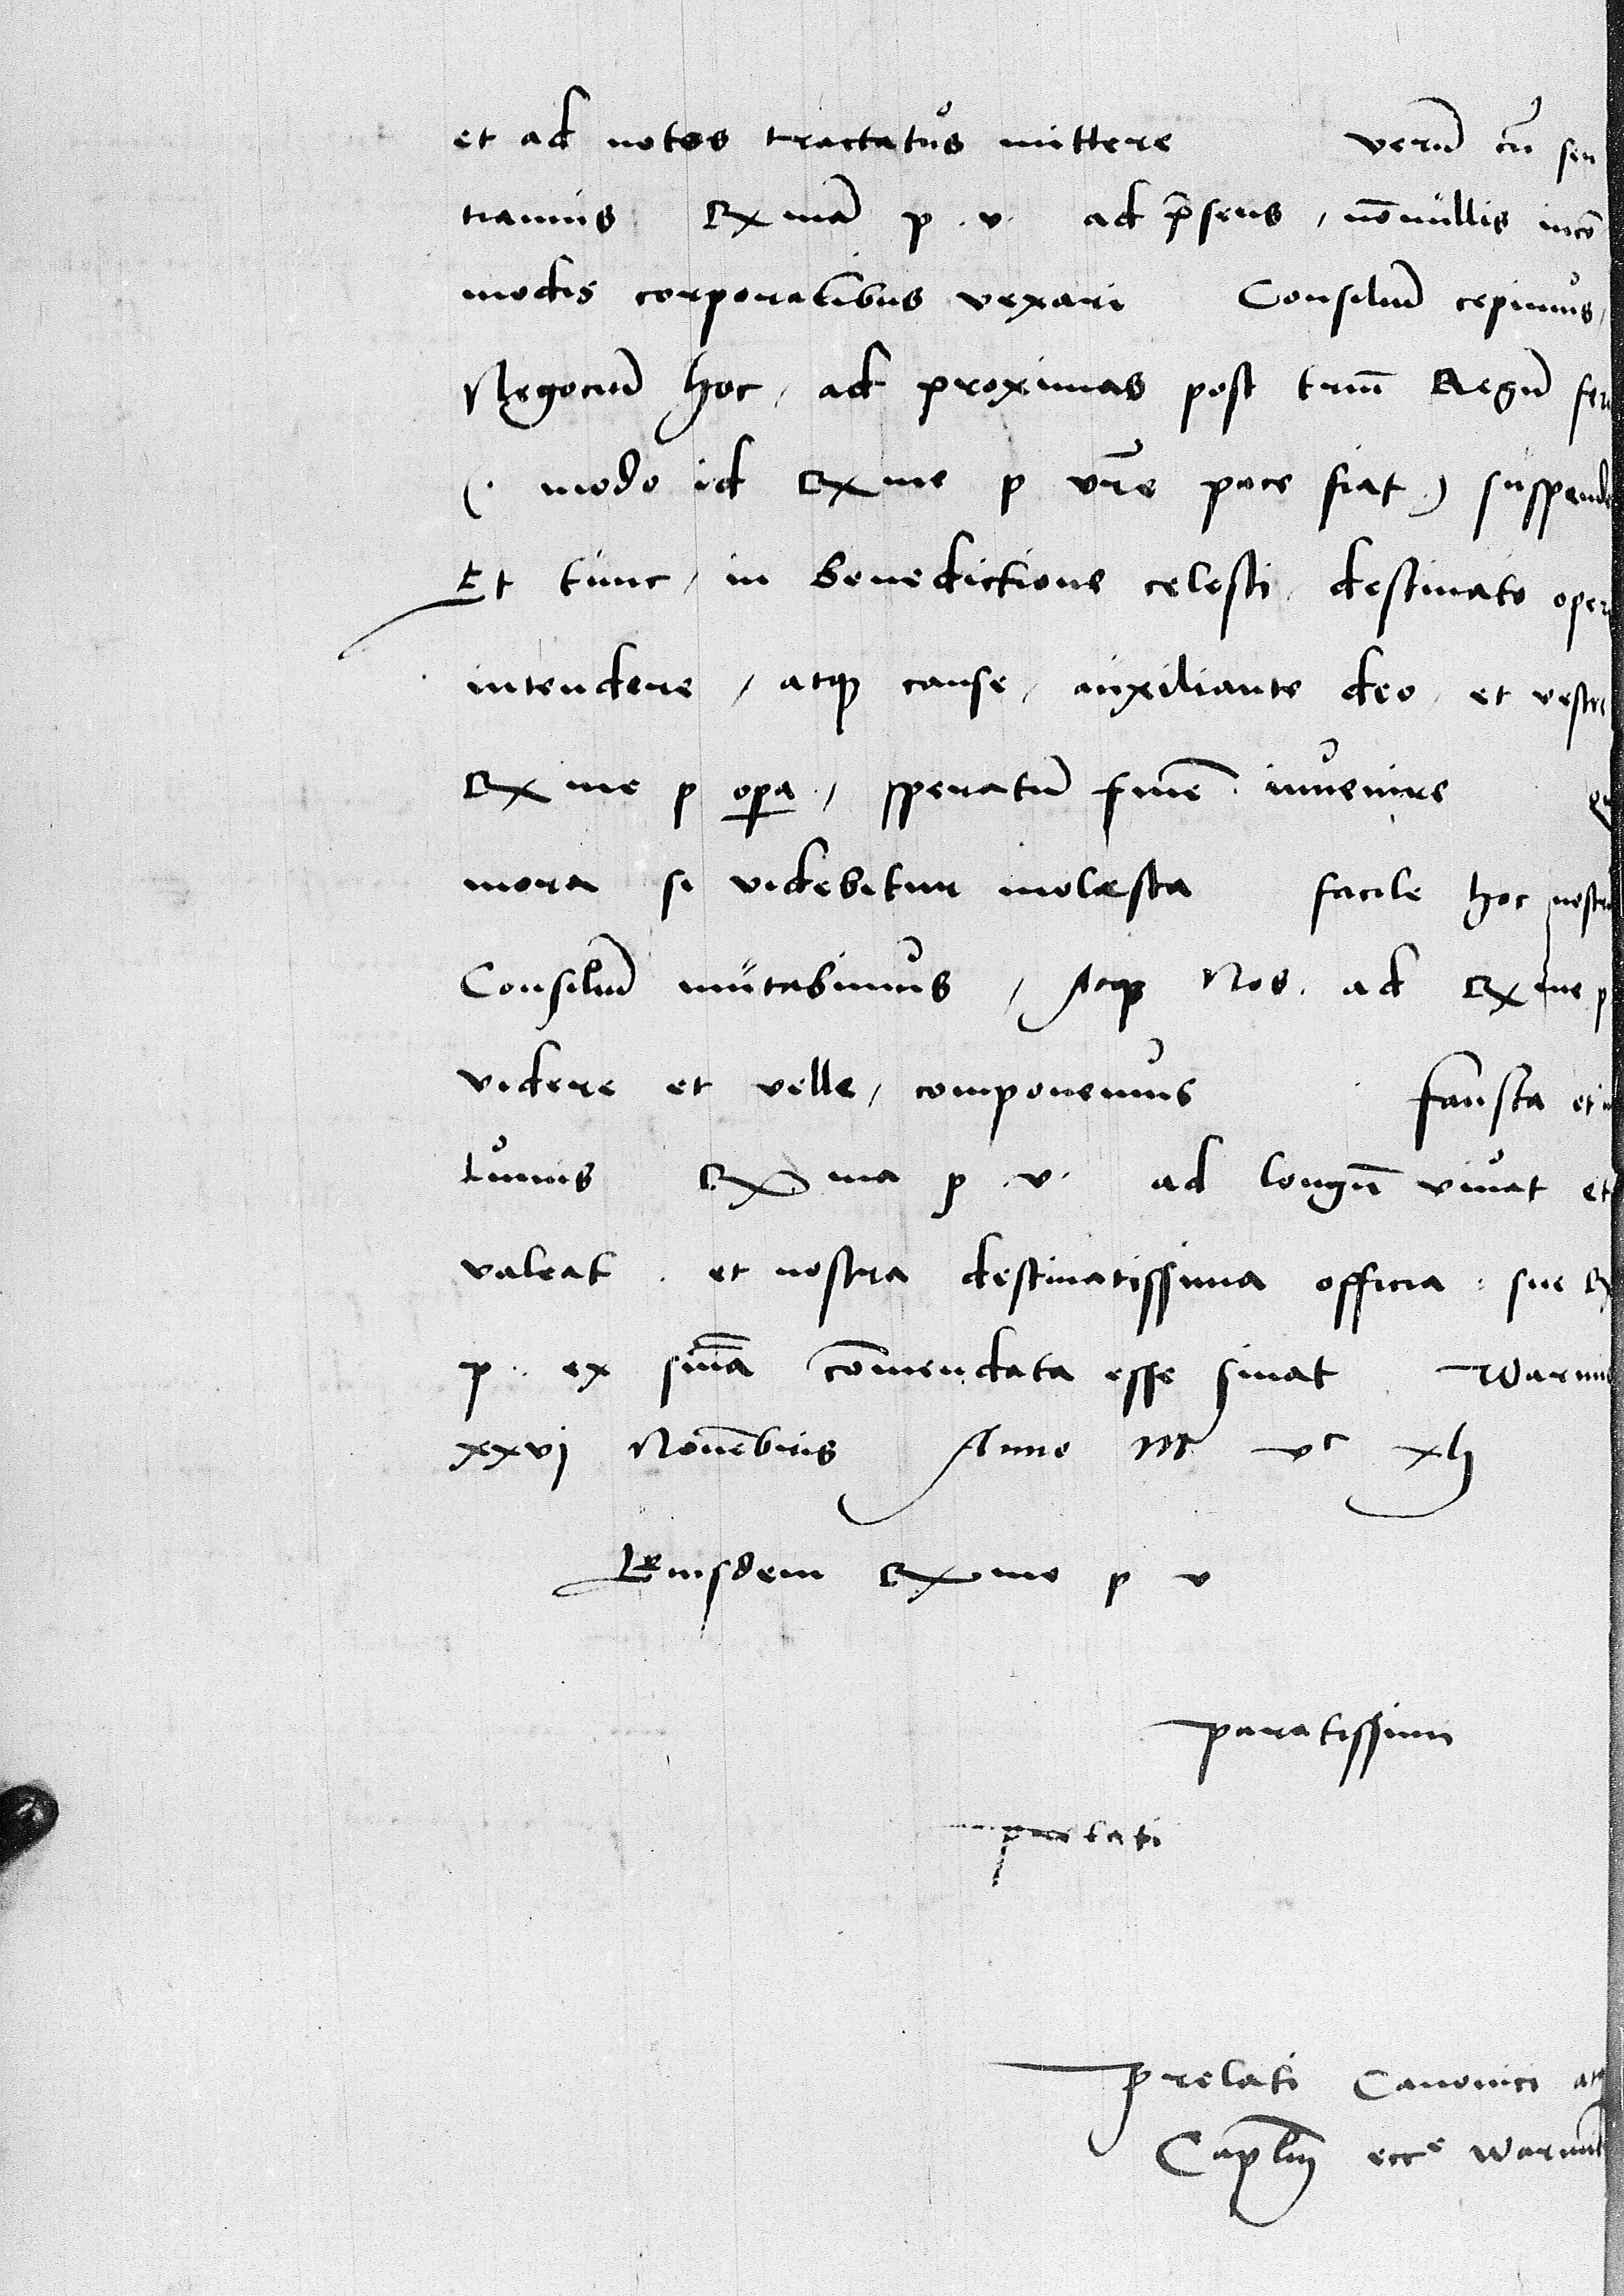 et ad notos tractatus mittere verū cū sen
tiamus Rx mā p. v. ad p̄sens, nōnullis incō
modis corporalibus vexari Consiliū cepimus,
Negociū hoc, ad proximas post triū Regū feri
(. modo id Rx me p vr̄e pace fiat.) suspend
Et tunc, in benedictione celesti, destinato oper
intendere, atq cause, auxiliante deo, et vestr
Rx me p opa, speratū finē invenire
mora si videbitur molesta facile hoc nostrū
Consiliū mutabimus, Atq Nos. ad Rx me p
videre et velle, componemus fausta et in
lumis Rx ma p. v. ad longū vivat et
valeat. et nostra destinatissima officia: sue Rx
p. ex sum̄a cōmendata esse sinat Warmie
xxvj Novēbris Anno M vc xlj
Eiusdem Rx me p v
paratissimi
prelati
Prelati Canonici atq
Capl̄m ecce warmie